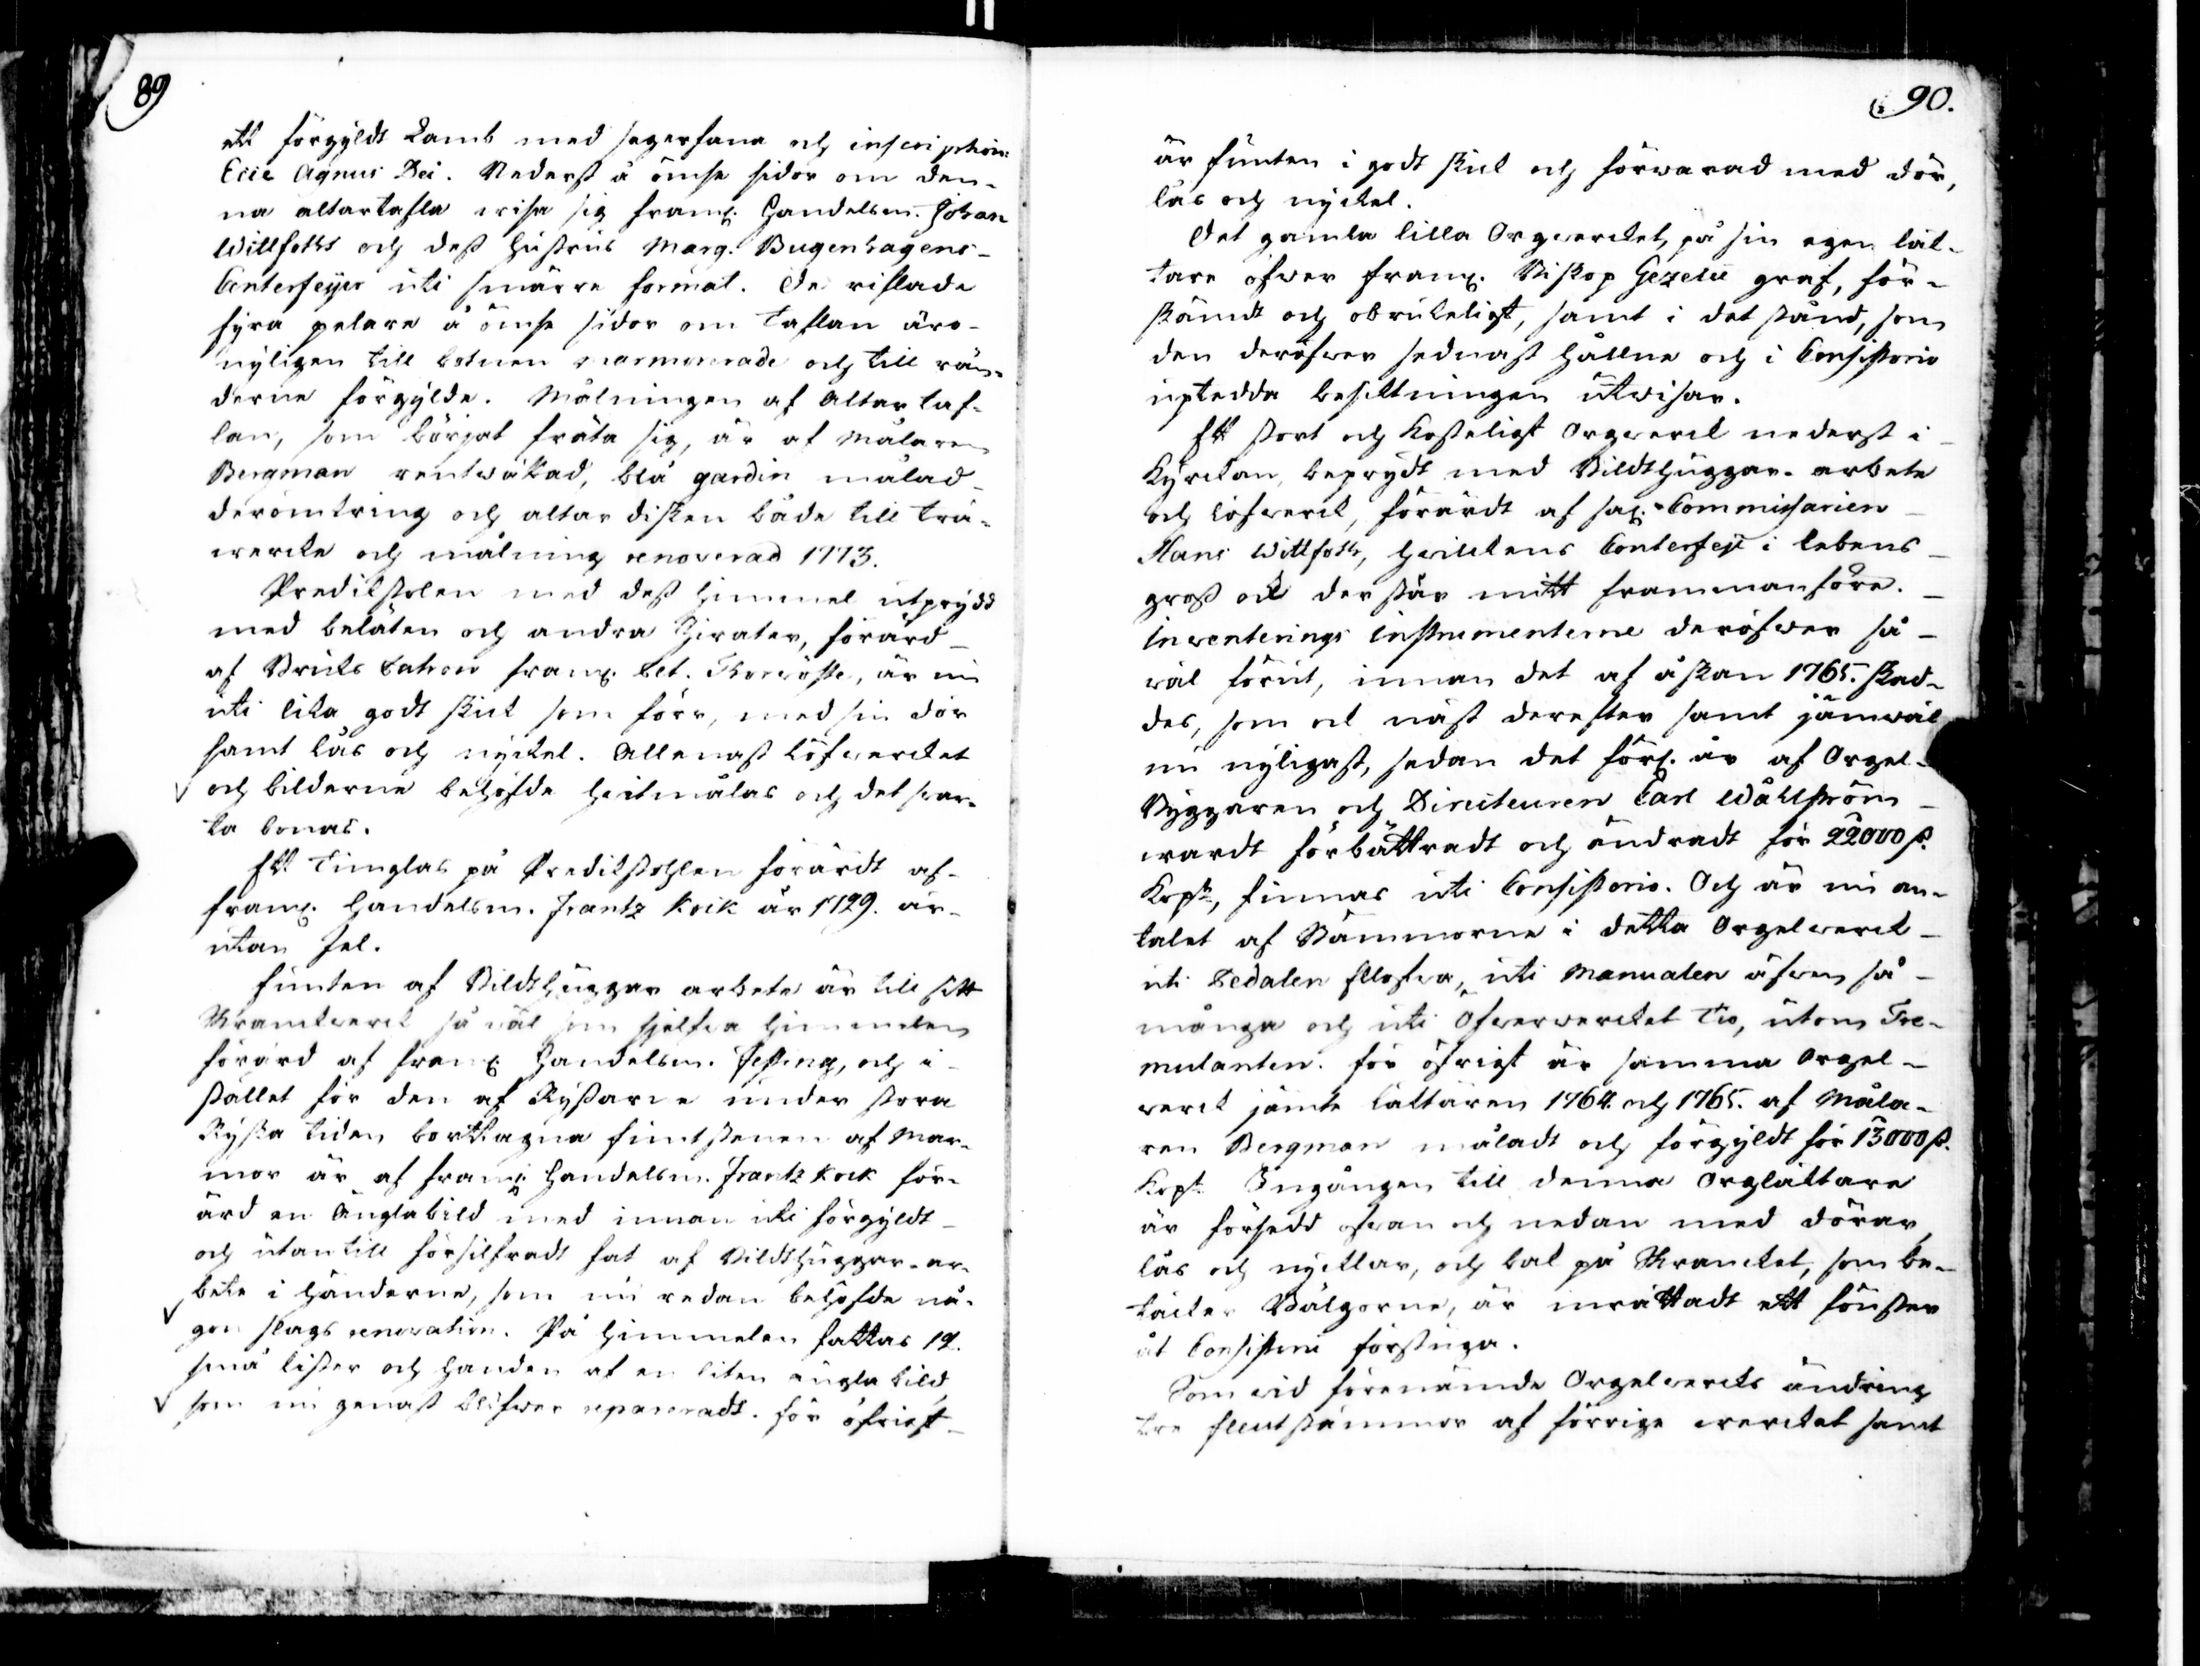 89
ett förgyldt Lamb med segerfana och inscription:
Ecce Agnus Dei. Nederst å ömse sidor om den-
na altartafla wisa sig framl. Handelsm. Johan
Wittfoths och dess Hustrus Marg. Bugenhagens
Conterfeyer uti smärre format. De riflade
fyra pelare å ömse sidor om taflan äro
nyligen till botnen marmorerade och till rän-
derne förgylde. Målningen af Altartaf-
lan, som börjat fräta sig, är af Målaren
Bergman rentwättad, blå gardin målad
deromkring och altar disken både till trä-
wercke och målning renoverad 1773.
Predikstolen med dess himmel utprydd
med beläten och andra Zirater, förärd
af Bruks Patron framl. Pet. Thorwöste, är nu
uti lika godt skick som förr, med sin dör
samt lås och nyckel. Allenast Löfwercket
och bilderne behöfde hwitmålas och det swar-
ta bonas.
Ett Timglas på Predikstohlen förärdt af
framl. Handelsm. Frantz Kock år 1729. är
utan fel.
Funten af Bildthuggar arbete är till sitt
Skranckwerck så wäl som sjelfwa himmelen
förärd af framl. Handelsm. Jesping, och i
stället för den af Ryssarne under stora
Ryssa tiden borttagna funtstenen af Mar-
mor är af framl. Handelsm. Frantz Kock för-
ärd en Änglabild med innan uti förgyldt
och utantill försilfradt fat af Bildthuggar-ar-
bete i händerne, som nu redan behöfde nå-
gon slags renovation. På himmelen fattas 12.
små lister och handen af en liten ängla bild,
som nu genast blifwer repareradt. För öfrigt
90.
är funten i godt skick och förwarad med dör,
lås och nyckel.
Det gamla lilla Orgwercket, på sin egen läk-
tare öfwer framl. Biskop Gezelii graf, för-
skämdt och obrukeligt, samt i det stånd, som
den deröfwer sednast hållne och i Consistorio
uptedda besiktningen utwisar.
Ett stort och kosteligt Orgwerck nederst i
Kyrckan, beprydt med Bildthuggar-arbete
och Löfwerck, förärdt af sal. Commissarien
Hans Wittfoth, hwilckens Conterfeji i lebens-
gross ock der står mitt frammanföre.
Inventerings Instrumenterne deröfwer så-
wäl förut, innan det af åskan 1765. skad-
des, som ock näst derefter samt jämwäl
nu nyligast, sedan det förl. år af Orgel-
Byggaren och Directeuren Carl Wåhlström
wardt förbättradt och ändradt för 22000 D.
Kopt, finnas uti Consistorio. Och är nu an-
talet af Stämmorne i detta Orgelwerck
uti Pedalen Ellofwa, uti Manualen äfwen så
många och uti Öfwerwercket Tio, utom Tre-
mulanten. För öfrigt är samma Orgel-
werck jämte Läktaren 1764. och 1765. af Måla-
ren Bergman måladt och förgyldt för 13000 D.
Kopt. Ingången till denna Orgläktare
är försedd ofwan och nedan med dörar,
lås och nycklar, och bak på Skrancket, som be-
täcker Bälgorne, är inrättadt ett fönster
åt Consistorii förstuga.
Som wid förenämde Orgelwercks ändring
tre fleutstämmor af förrige wercket samt